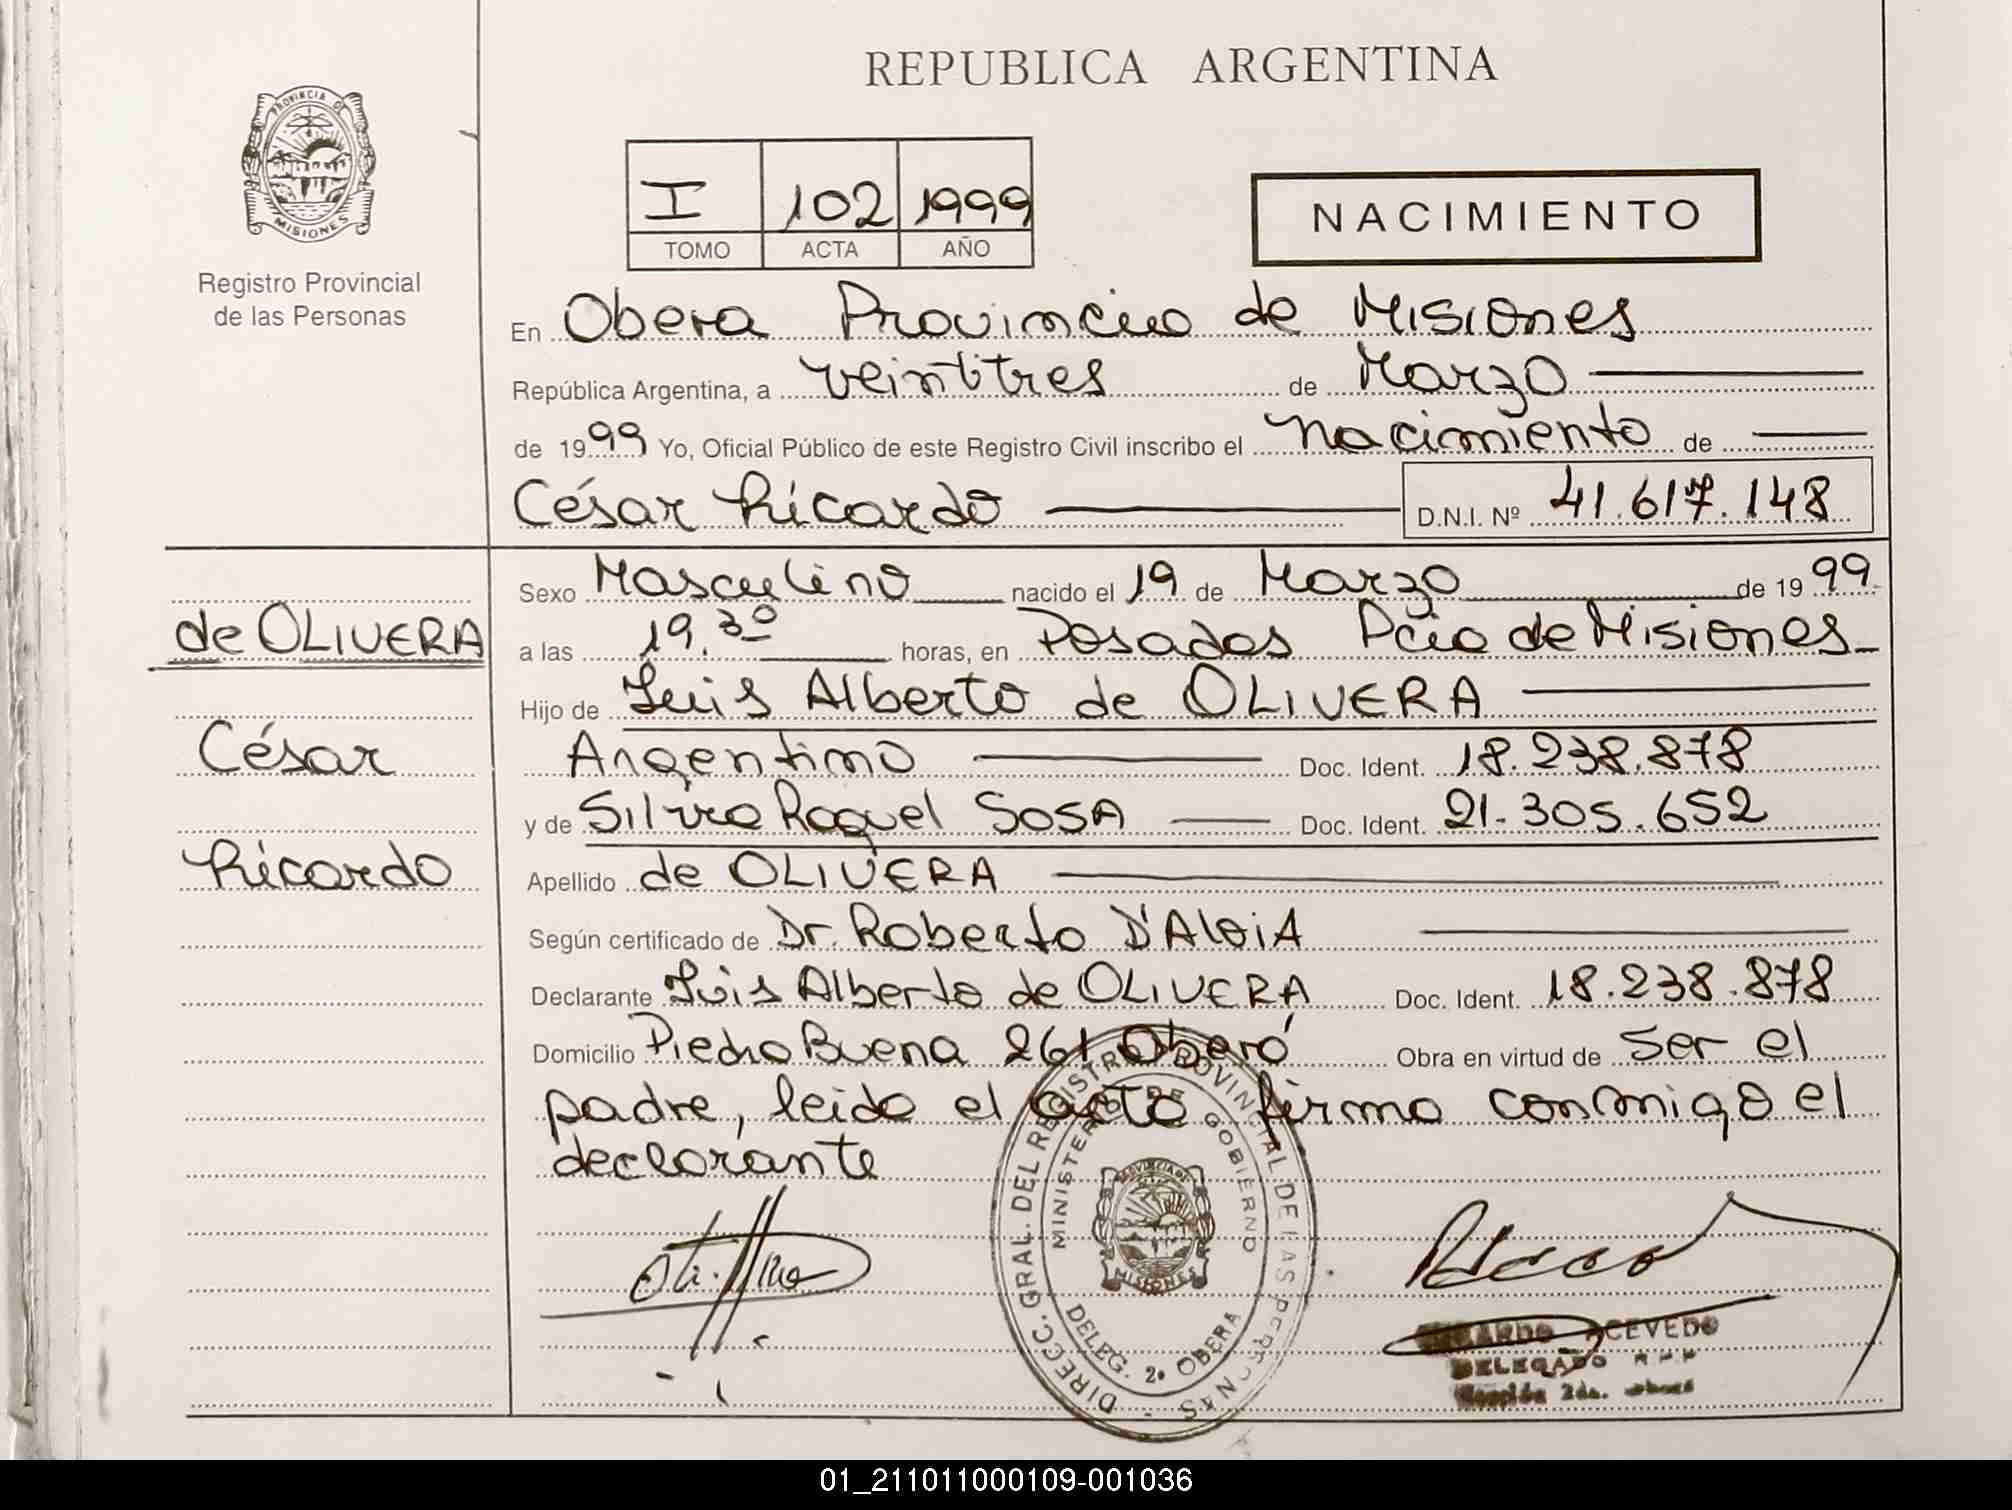 REPUBLICA ARGENTINA
PROVINCIA DE
MISIONES
Registro Provincial
de las Personas
I 102 1999
TOMO ACTA AÑO
NACIMIENTO
En Obera Provincia de Misiones
República Argentina, a veintitres de Marzo
de 1999 Yo, Oficial Público de este Registro Civil inscribo el nacimiento de
César Ricardo D.N.I. Nº 41.617.148
Sexo Masculino nacido el 19 de Marzo de 1999
de OLIVERA
a las 19.30 horas, en Posadas Pcia de Misiones
Hijo de Luis Alberto de OLIVERA
César
Argentino Doc. Ident. 18.238.878
y de Silvia Raquel SOSA Doc. Ident. 21.305.652
Ricardo
Apellido de OLIVERA
Según certificado de Dr. Roberto D'AloiA
Declarante Luis Alberto de OLIVERA Doc. Ident. 18.238.878
Domicilio Piedra Buena 261 Oberá Obra en virtud de ser el
padre, leida el acta firma conmigo el
declarante
DIRECC. GRAL. DEL REGISTRO PROVINCIAL DE LAS PERSONAS
MINISTERIO DE GOBIERNO
PROVINCIA DE
MISIONES
DELEG. 2ª OBERA
ACEVEDO
DELEGADO
Sección 2da.
01_211011000109-001036